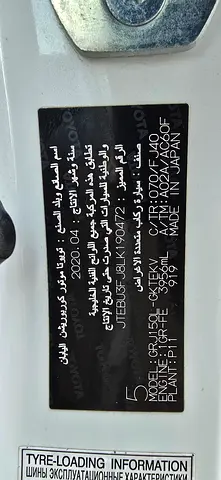 اسم الصانع وبلد الصنع : تويوتا موتور كوربوريشن اليابان
سنة وشهر الانتاج : 2020.04
تطابق هذه المركبة جميع اللوائح الفنية الخليجية
والوطنية للسيارات التي صدرت حتى تاريخ الانتاج
الرقم المميز : JTEBU3FJ8LK190472
صنف : سيارة ركاب متعددة الاغراض
5
MODEL:GRJ150L-GKTEKV C/TR:070/FJ40
ENGINE:1GR-FE 3956mL A/TM:A02A/AC60F
PLANT:P11 919 MADE IN JAPAN
TYRE-LOADING INFORMATION
ШИНЫ ЭКСПЛУАТАЦИОННЫЕ ДАННЫЕ